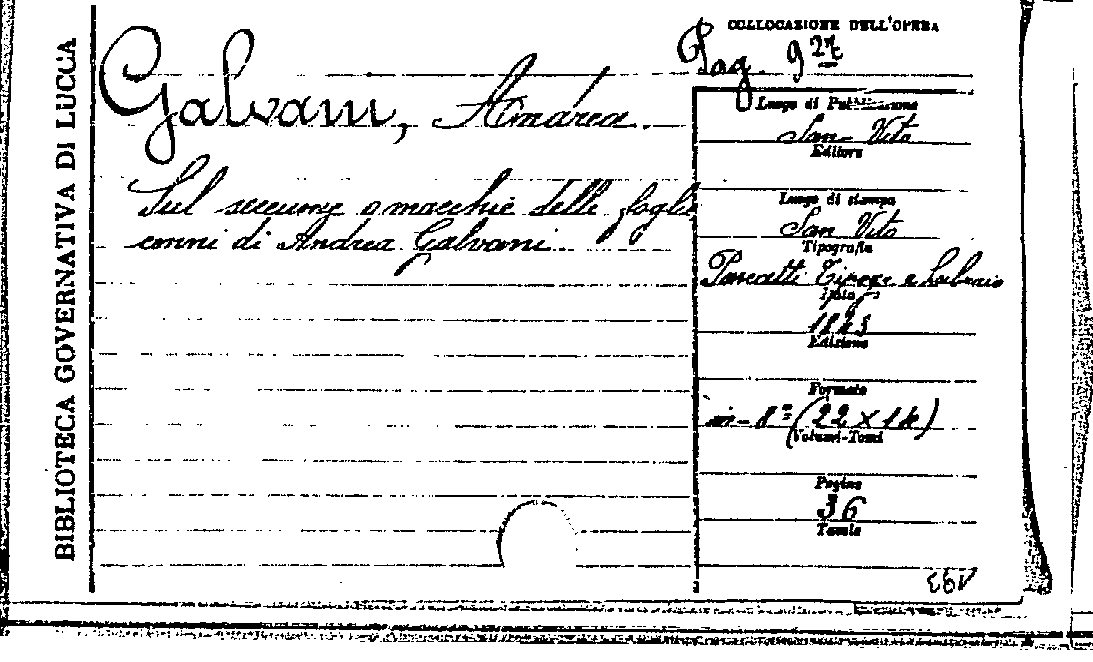 BIBLIOTECA GOVERNATIVA DI LUCCA
COLLOCAZIONE DELL'OPERA
Pag. 927
Galvani, Andrea.
Sul seccume o macchie delle foglie
cenni di Andrea Galvani
Luogo di Pubblicazione
San Vito
Editore
Luogo di stampa
San Vito
Tipografia
Pascatti Tipogr. e Libraio
Data
Edizione
Formato
in-8º (22 x 14)
Volumi-Tomi
Pagine
36
Tavole